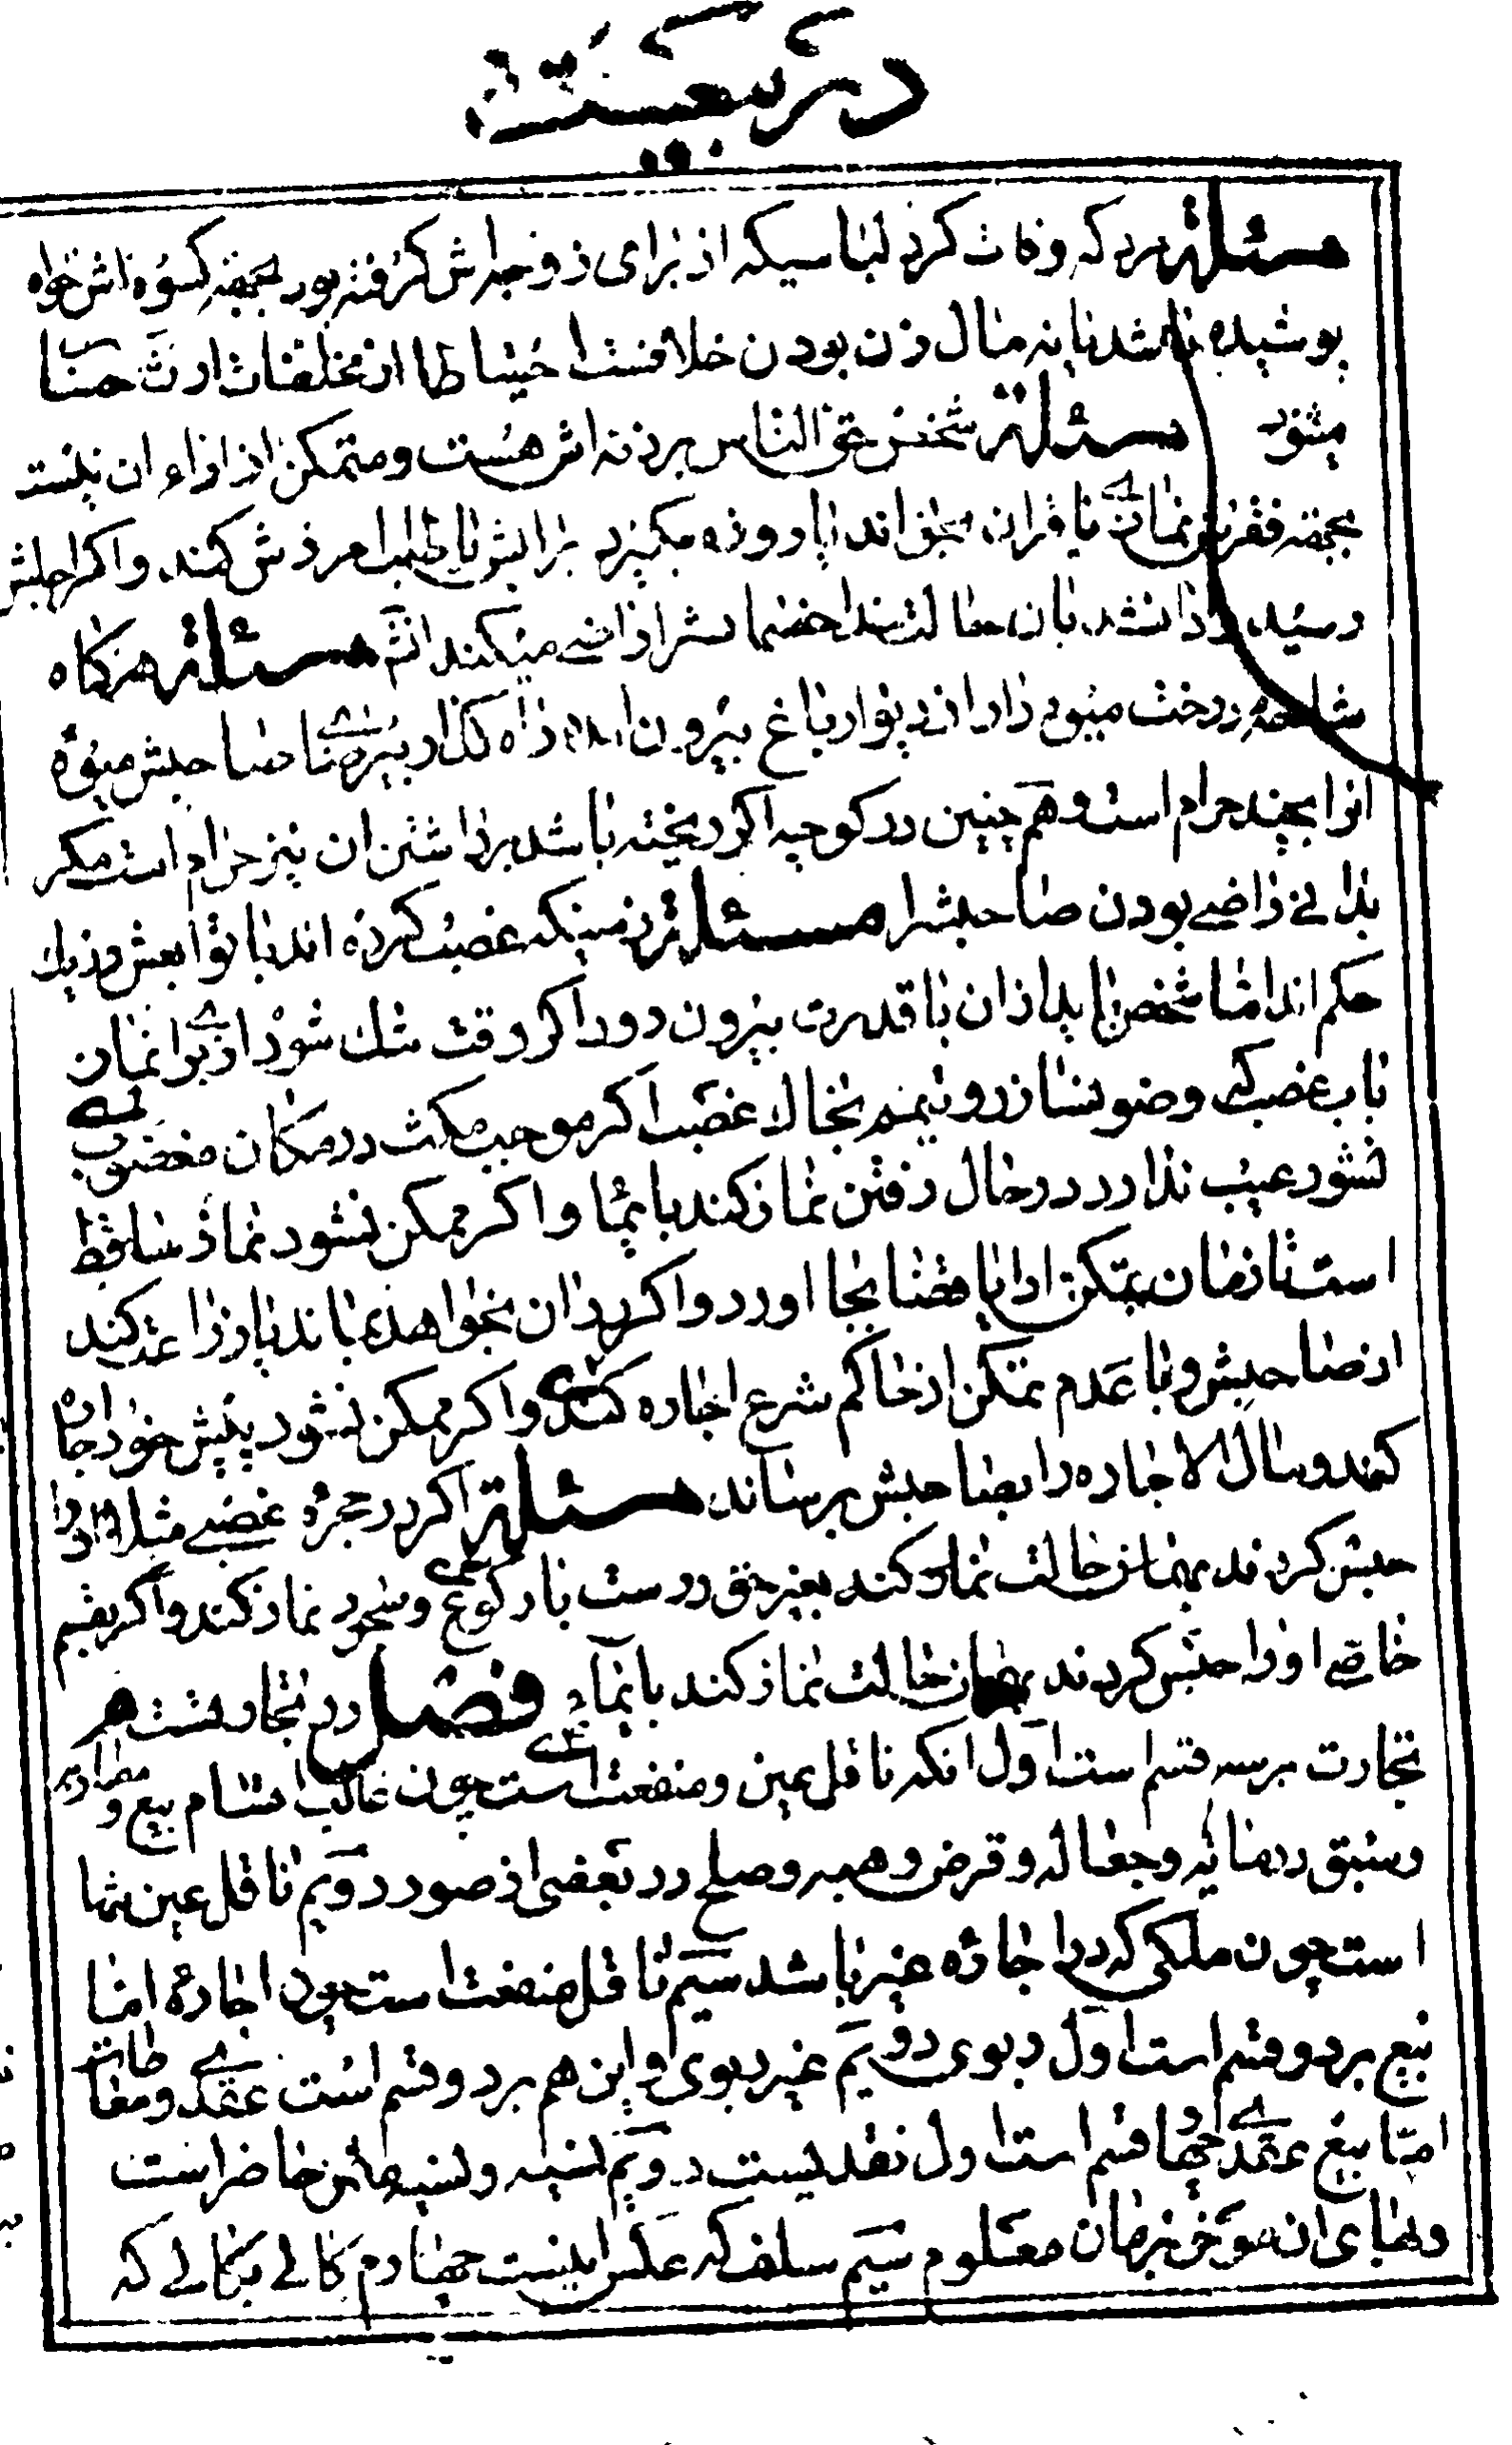 در بیعست
مسئلة مرد که وفات کرد لباسیکه از برای زوجه اش گرفته بود بجهة کسوه اش خواه
پوشیده باشد یا نه مال زن بودن خلافست احتیاطا از مخلفات ارث حساب
میشود مسئلة شخص حق الناس بر ذمه اش هست و متمکن از اداء ان نیست
بجهة فقرش نمازی یا قران بخواند یا روزه بگیرد برایش یا طلب امرزش کند و اگر اجلش
رسید و ادا نشد بان حالت خدا خصمایش را راضی میکند انشا مسئلة هرگاه
شاخه درخت میوه دار از دیوار باغ بیرون امد راه گذار بی رضای صاحبش میوه
انرا بچیند حرام است و هم چنین در کوچه اگر ریخته باشد برداشتن ان نیز حرام است مگر
بدانی راضی بودن صاحبشرا مسئلة زمینیکه غصب کرده اند با توابعش در یک
حکم اند اما شخص باید از ان با قدرت بیرون رود اگر وقت تنگ شود از برای نماز
باب غصبی وضو نسازد و تیمم بخاک غصب اگر موجب مکث در مکان مغصوب نمی
نشود عیب ندارد در حال رفتن نماز کند بایما و اگر ممکن نشود نماز ساقط
است تا زمان تمکن ادا یا قضا بجا اورد و اگر در ان بخواهد بماند باید اجاره کند
از صاحبش و با عدم تمکن از حاکم شرع اجاره کند و اگر ممکن نشود پیش خود اجاره
کند و مال الاجاره را بصاحبش برساند مسئلة اگر در حجره غصبی مثلا او را
حبس کردند بهمان حالت نماز کند بغیر حق درست با رکوع و سجود نماز کند و اگر بقسم
خاصی او را حبس کردند بهمان حالت نماز کند بایماء فصل در تجارتست هر
تجارت بر سه قسم است اول انکه ناقل عین و منفعت است چون غالب اقسام بیع و مضاربه
و سبق و رمایه و جعاله و قرض و هبه و صلح در بعضی از صور دویم ناقل عین تنها
است چون ملکی که در اجاره غیر باشد سیم ناقل منفعت است چون اجاره اما
بیع بر دو قسم است اول ربوی دویم غیر ربوی و این هم بر دو قسم است عقدی و معاطات
امّا بیع عقدی چهار قسم است اول نقد لیست دویم نسیه و نسیه مثمن حاضر است
و بهای ان مؤخر بزمان معلوم سیم سلف که عکس اینست چهارم کالی بکالی که